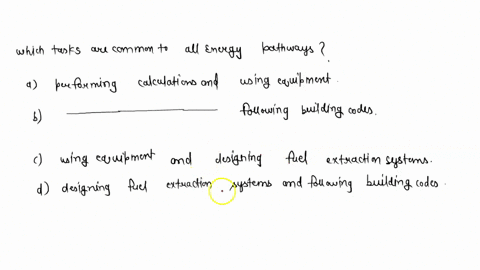 which tasks are common to all Energy pathways?
a) performing calculations and using equipment.
b) following building codes.
c) using equipment and designing fuel extraction systems.
d) designing fuel extraction systems and following building codes.